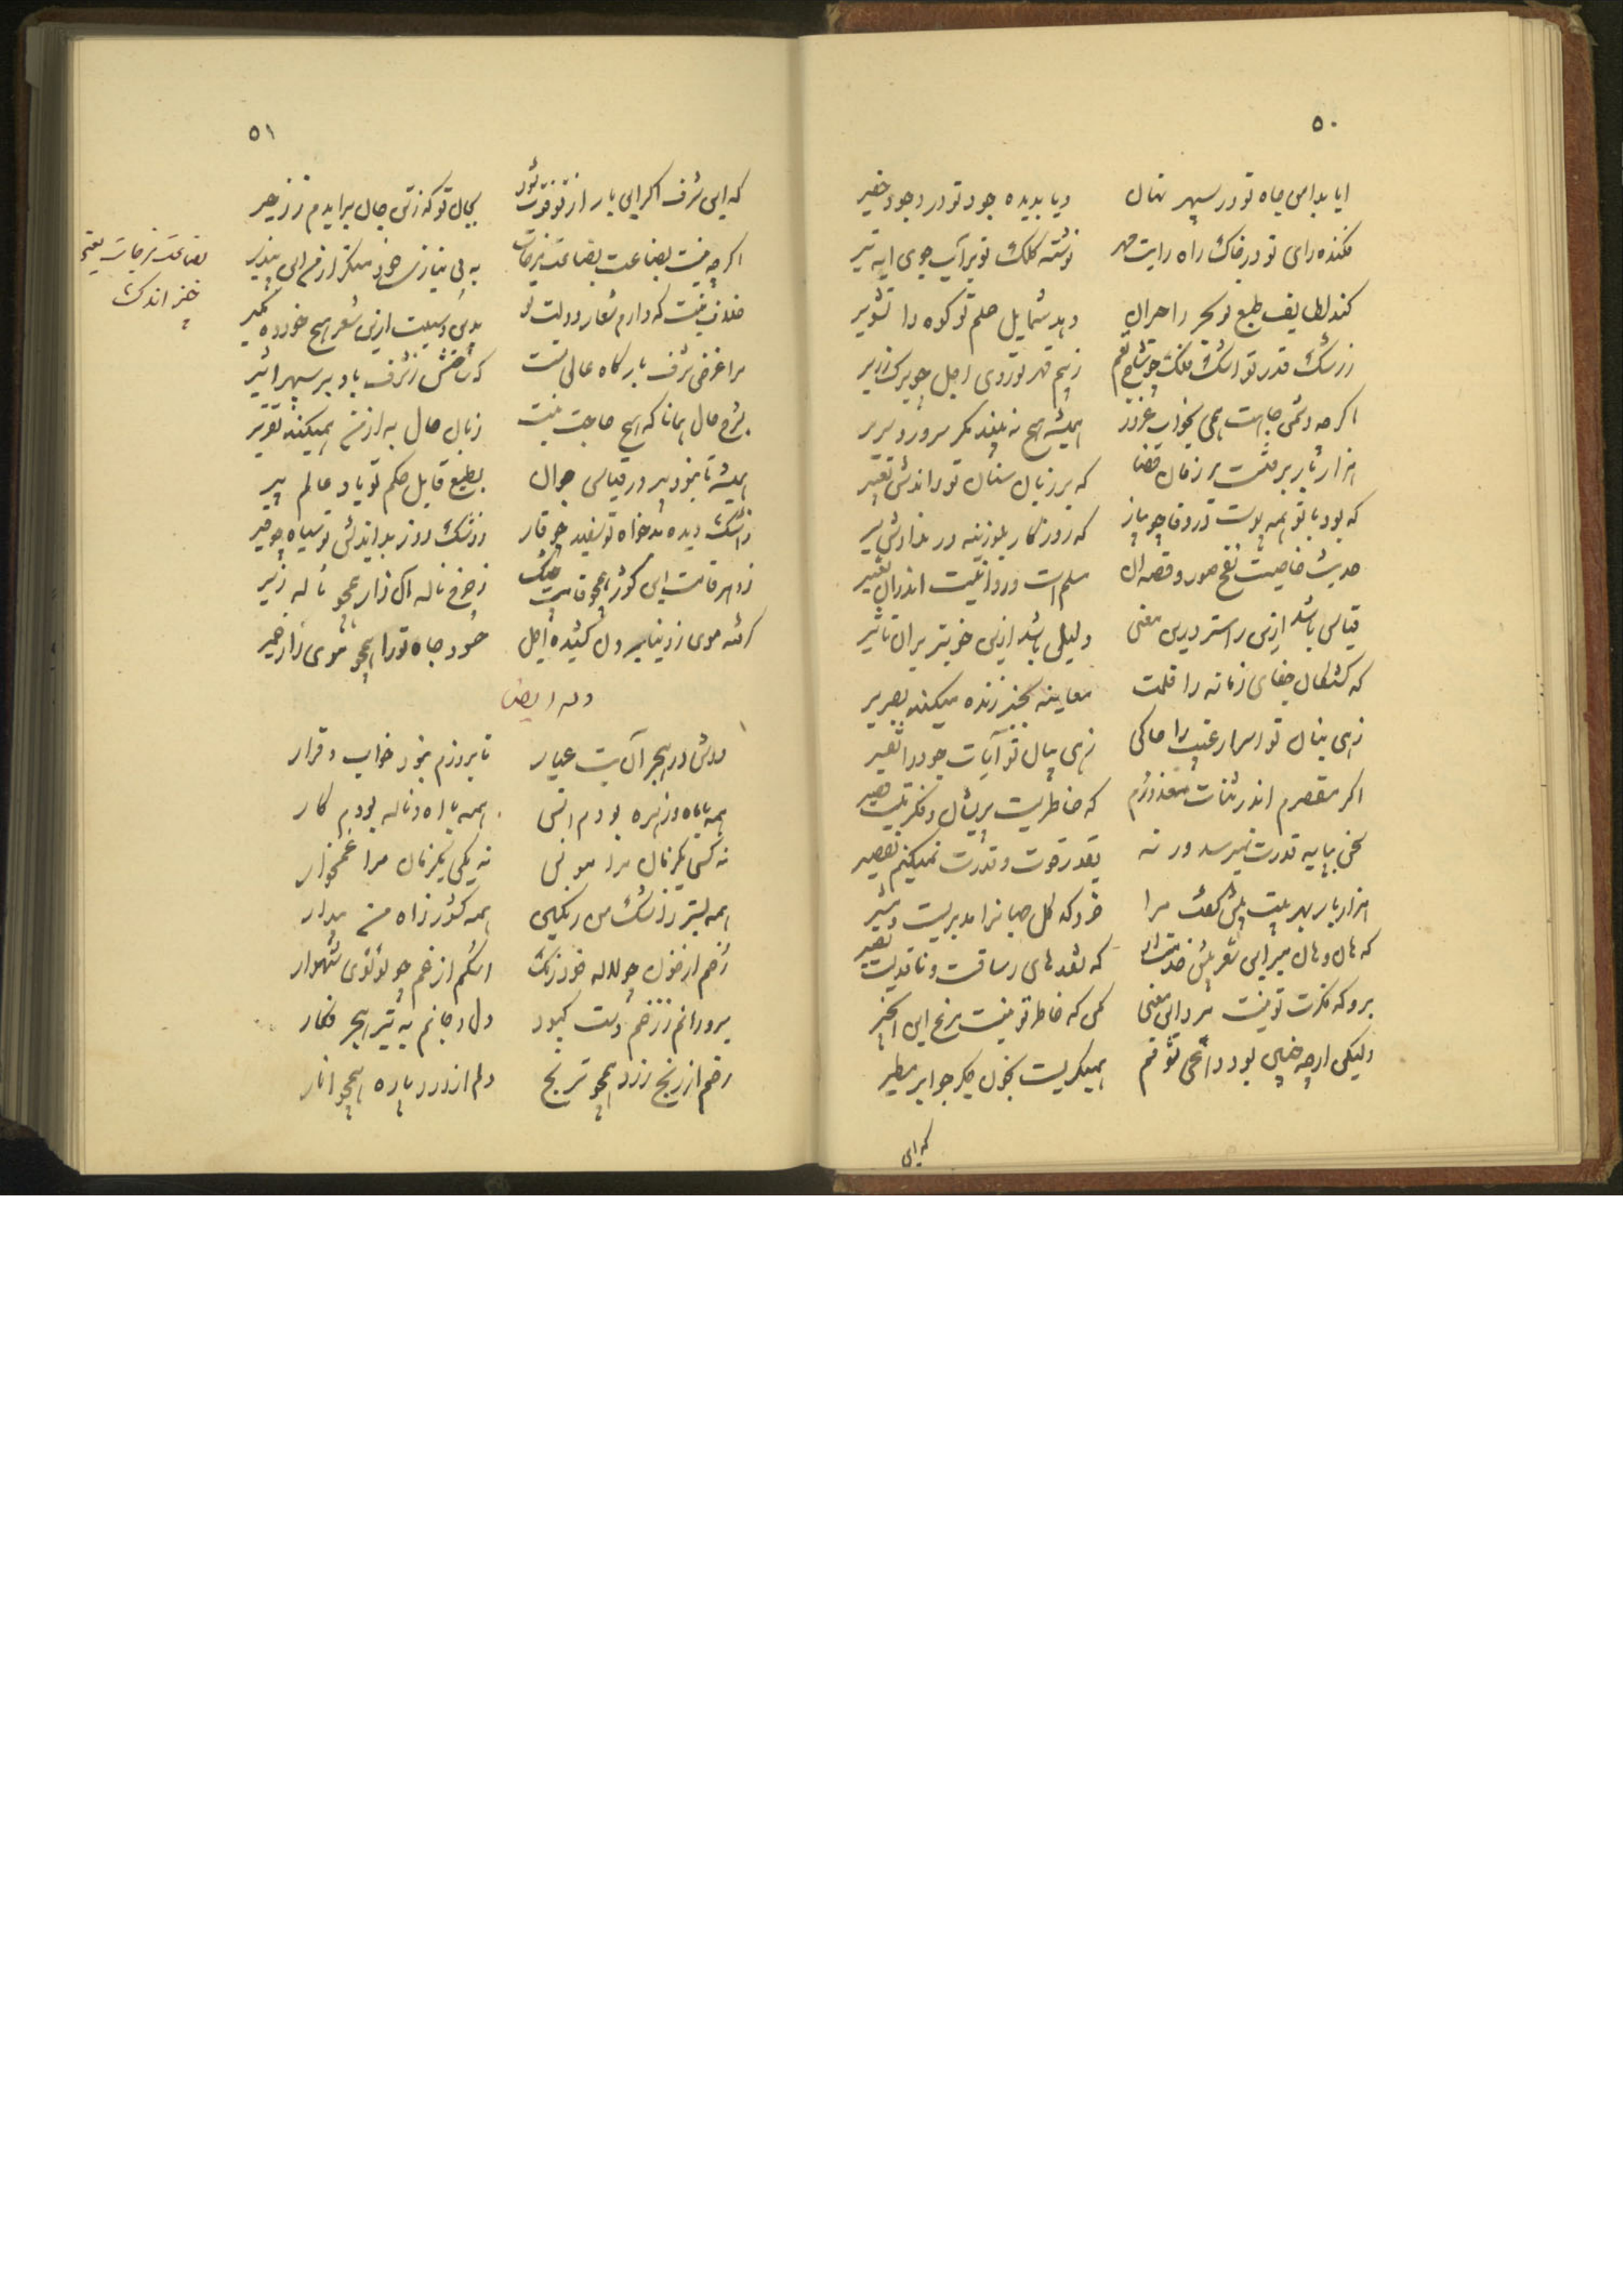 ۵۰
ایا بدامن جاه تو در سپهر نهان
ویا بدیده جود تو در وجود حقیر
فکنده رای تو در خاک راه رایت مهر
نوشته کلک تو بر آب جوی آیه تیر
کند لطایف طبع تو بحر را حیران
دهد شمایل حلم تو کوه را تشویر
ز رشک قدر تو اشک فلک چو شاخ بقم
ز بیم قهر تو روی اجل چو برک زریر
اکر چه دشمن جاهت همی بخواب غرور
همیشه هیچ نه بیند مکر سرور و سریر
هزار بار بر فتست بر زبان قضا
که بر زبان سنان تو راندش تعبیر
که بود با تو همه پوست در وفا چو پیاز
که روزکار بلوزینه در ندادش سیر
حدیث خاصیت نفخ صور و قصه آن
مسلم است و روا نیست اندران تغییر
قیاس باشد ازین راستر درین معنی
دلیل باشد ازین خوبتر بران تاثیر
که کشتکان جفای زمانه را قلمت
معاینه بجز زنده میکند بصریر
زهی بنان تو اسرار غیب را حاکی
زهی بیان تو آیات جود را تفسیر
اکر مقصرم اندر ثنات معذورم
که خاطریست پریشان و فکرتیست قصیر
سخن بپایه قدرت نمیرسد ور نه
بقدر قوت و قدرت نمیکنم تقصیر
هزار بار بهر بیت بیش کفت مرا
خرد که کل جهانرا مدبریست و مشیر
که هان و هان میر این شعر پیش خدمت او
که نقدهای رساقست و ناقدیست بصیر
برو که فکرت تو نیست مرد این معنی
کمی که خاطر تو نیست مرغ این انجیر
ولیکن ارچه چنین بود داعی شوقم
همیکریست بخون جکر چو ابر مطیر
که ای
۵۱
که ای شرف اکر این بار از تو فوت شود
بجان تو که زتن جان برایدم ز زحیر
اکر چه نیست بضاعت بضاعت مزجات
به بی نیازی خود منکر از من این بپذیر
خلاف نیست که دارم شعار دولت تو
بدین وسیلت ازین شعر هیچ خورده مکیر
مرا غرض شرف بارکاه عالی تست
که تا حشش ز شرف باد بر سپهر اثیر
بشرح حال همانا که هیچ حاجت نیست
زبان حال به از من همیکند تقریر
همیشه تا نبود پیر در قیاس جوان
بطبع قابل حکم تو باد عالم پیر
ز اشک دیده بدخواه تو سفید چو قار
ز رشک روز بداندیش تو سیاه چو قیر
ز دهر قامت این کوژ همچو قامت چنک
ز چرخ ناله آن زار همچو ناله زیر
کرفته موی ز دنیا برون کشیده اجل
حسود جاه تو را همچو موی از خمیر
وله ایضا
دوش در هجر آن بت عیار
تا بروزم نبود خواب و قرار
همه با ماه و زهره بودم انس
همه با آه و ناله بودم کار
نه کسی یکزمان مرا مونس
نه یکی یکزمان مرا غمخوار
همه بستر ز اشک من رنکین
همه کشور ز آه من بیدار
رخم از خون چو لاله خود رنک
اشکم از غم چو لؤلؤی شهوار
بر و رانم ز زخم دست کبود
دل و جانم به تیر هجر فکار
رخم از رنج زرد همچو ترنج
دلم از درد پاره همچو انار
بضاعت مزجات یعنی
چیز اندک